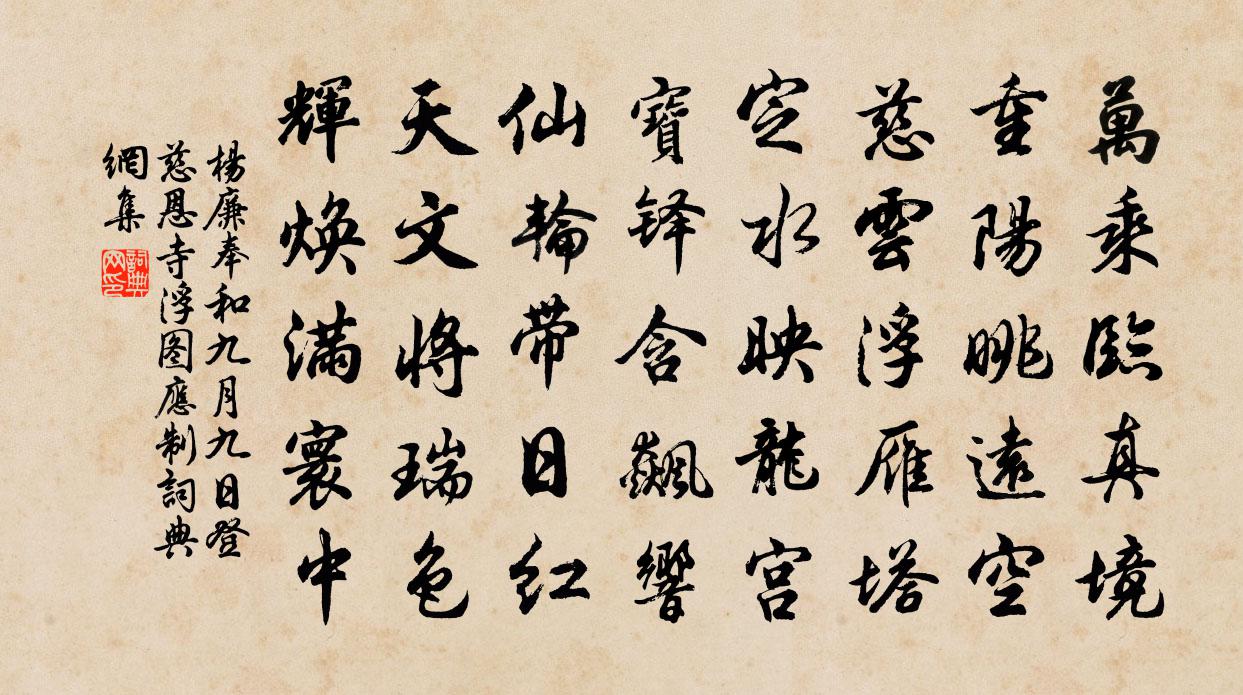 萬乘臨真境
重陽眺遠空
慈雲浮雁塔
定水映龍宮
寶铎含飆響
仙輪带日红
天文將瑞色
輝焕满寰中
楊廉奉和九月九日登
慈恩寺浮图應制詞典
網集
詞典
网印